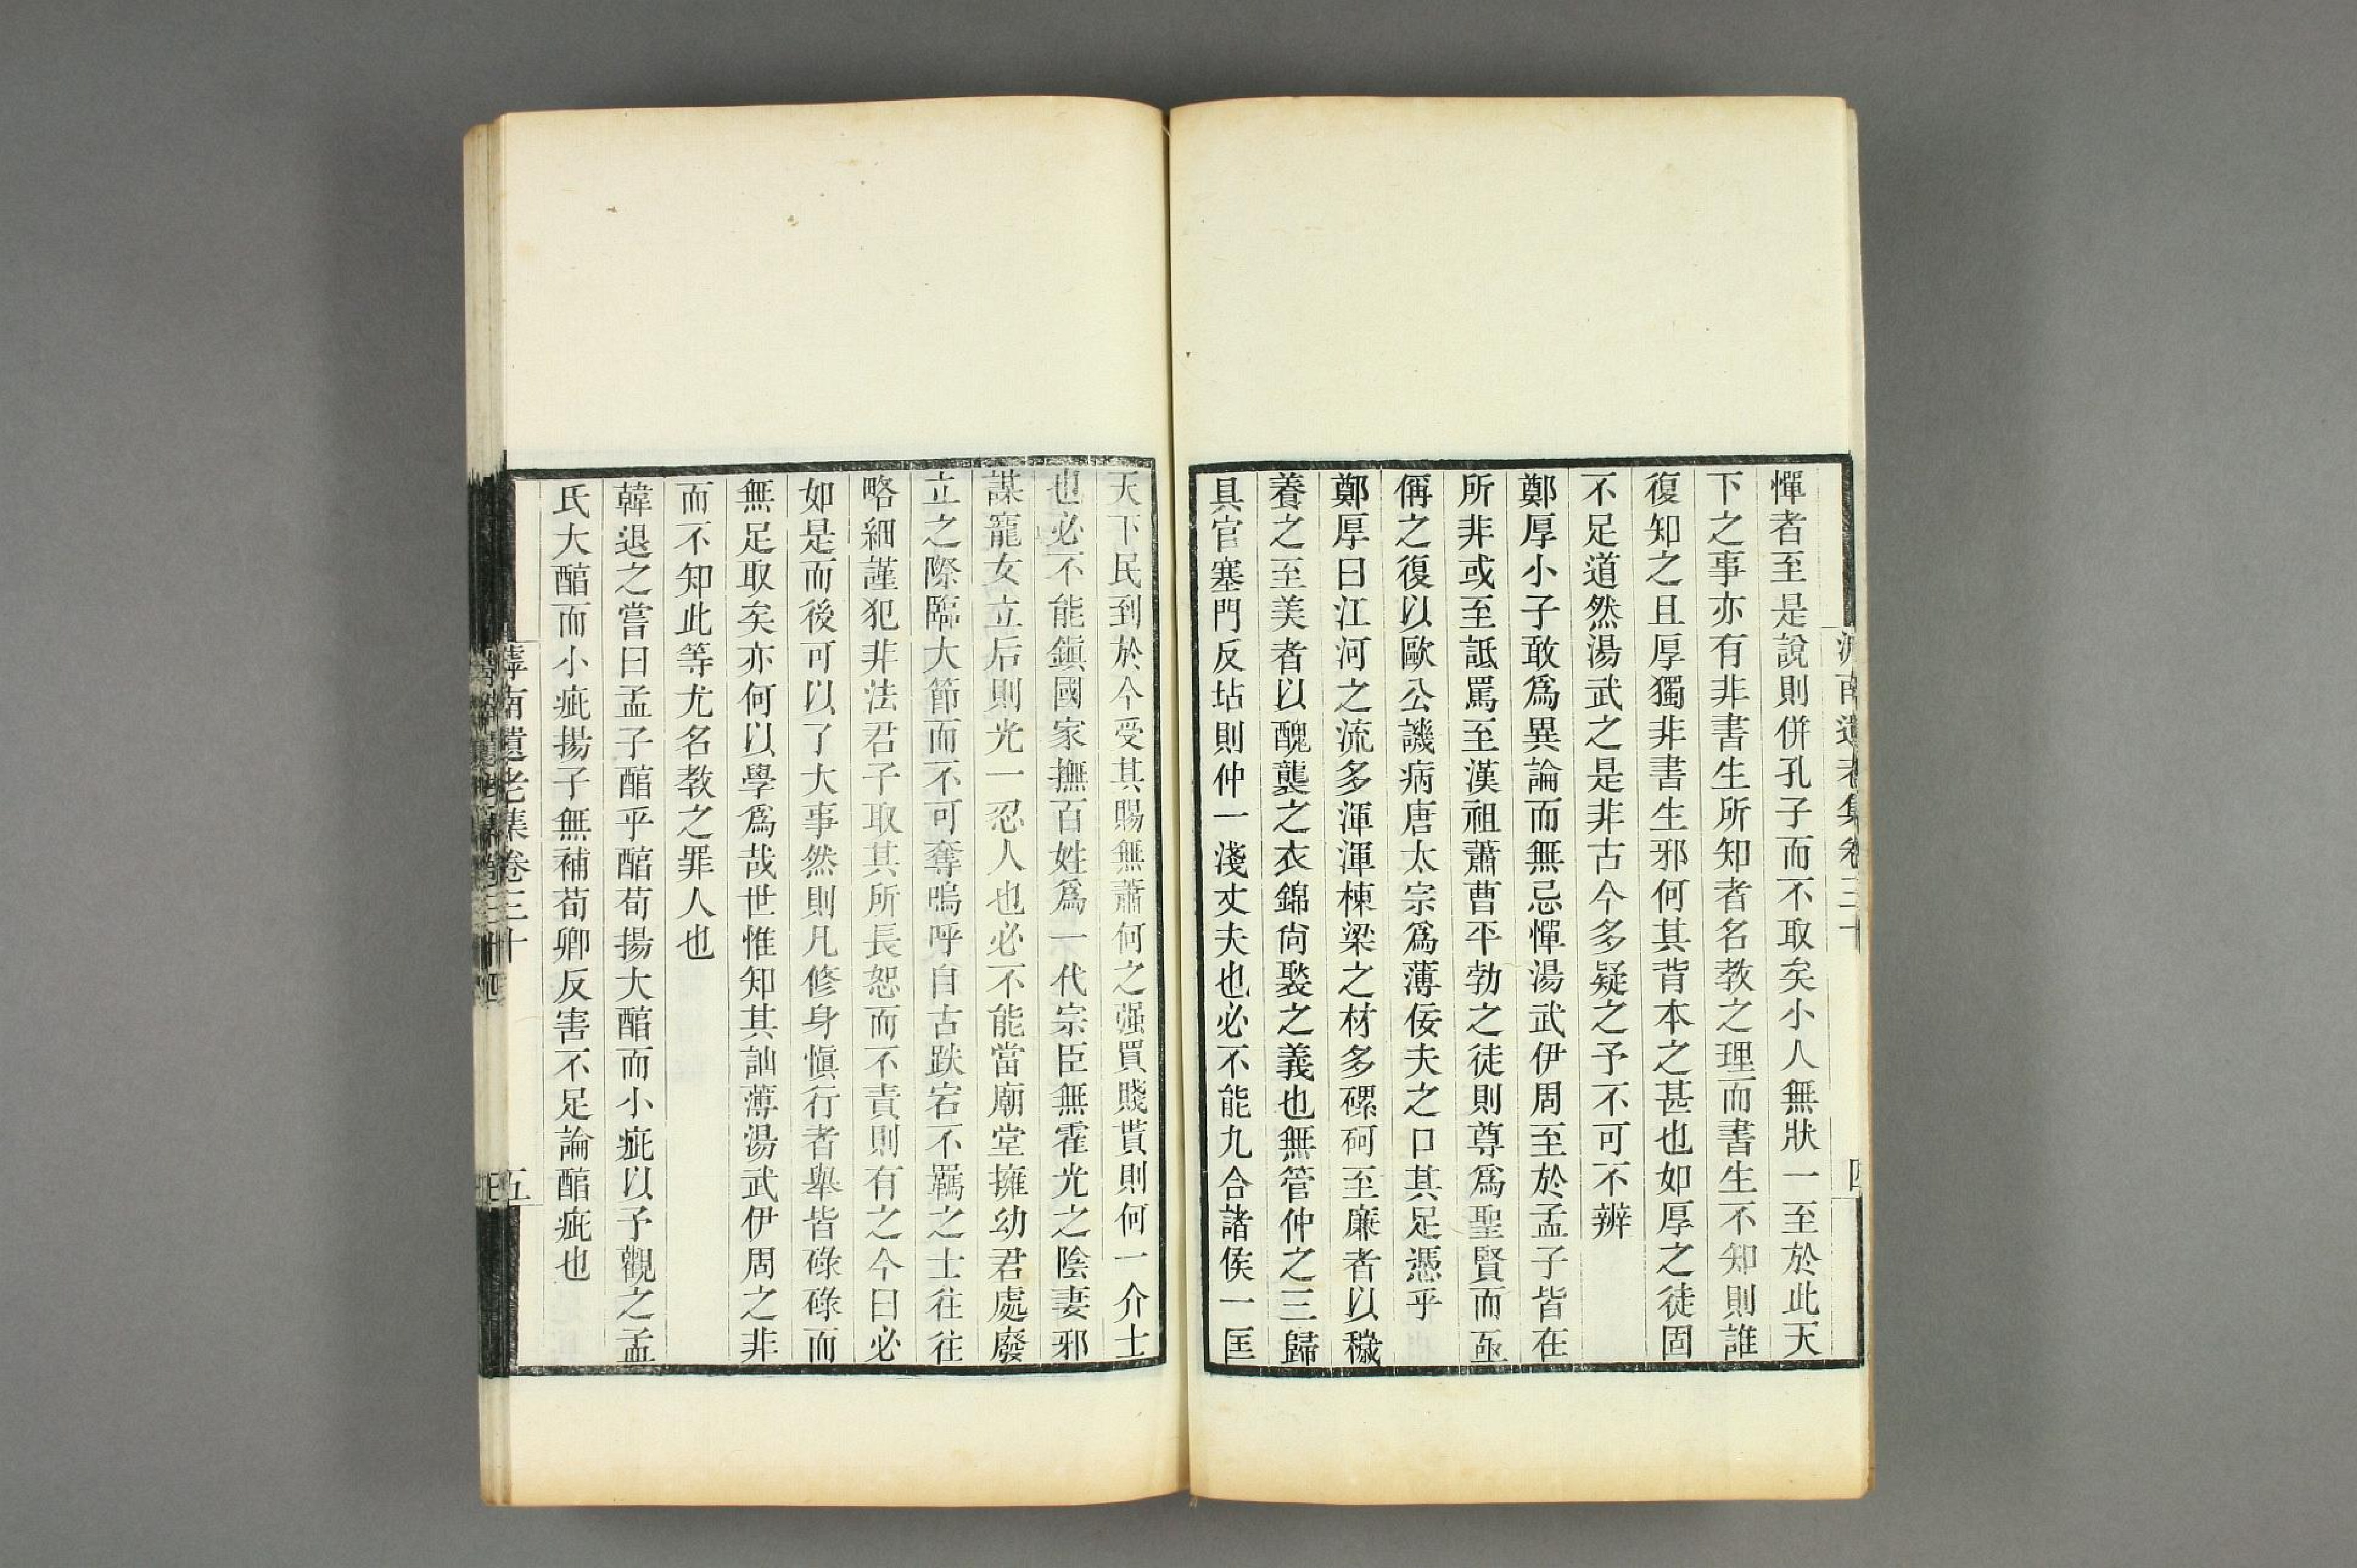 憚者至是說則併孔子而不取矣小人無狀一至於此天
下之事亦有非書生所知者名教之理而書生不知則誰
復知之且厚獨非書生邪何其背本之甚也如厚之徒固
不足道然湯武之是非古今多疑之予不可不辨
鄭厚小子敢爲異論而無忌憚湯武伊周至於孟子皆在
所非或至詆罵至漢祖蕭曹平勃之徒則尊爲聖賢而亟
稱之復以歐公譏病唐太宗爲薄佞夫之口其足憑乎
鄭厚曰江河之流多渾渾棟梁之材多磥砢至廉者以穢
養之至美者以醜襲之衣錦尙褧之義也無管仲之三歸
具官塞門反坫則仲一淺丈夫也必不能九合諸侯一匡
天下民到於今受其賜無蕭何之强買賤貰則何一介士
也必不能鎭國家撫百姓爲一代宗臣無霍光之陰妻邪
謀寵女立后則光一忍人也必不能當廟堂擁幼君處廢
立之際臨大節而不可奪嗚呼自古跌宕不羈之士往往
略細謹犯非法君子取其所長恕而不責則有之今曰必
如是而後可以了大事然則凡修身愼行者舉皆碌碌而
無足取矣亦何以學爲哉世惟知其訕薄湯武伊周之非
而不知此等尤名教之罪人也
韓退之嘗曰孟子醕乎醕荀揚大醕而小疵以予觀之孟
氏大醕而小疵揚子無補荀卿反害不足論醕疵也
滹南遺老集卷三十
五